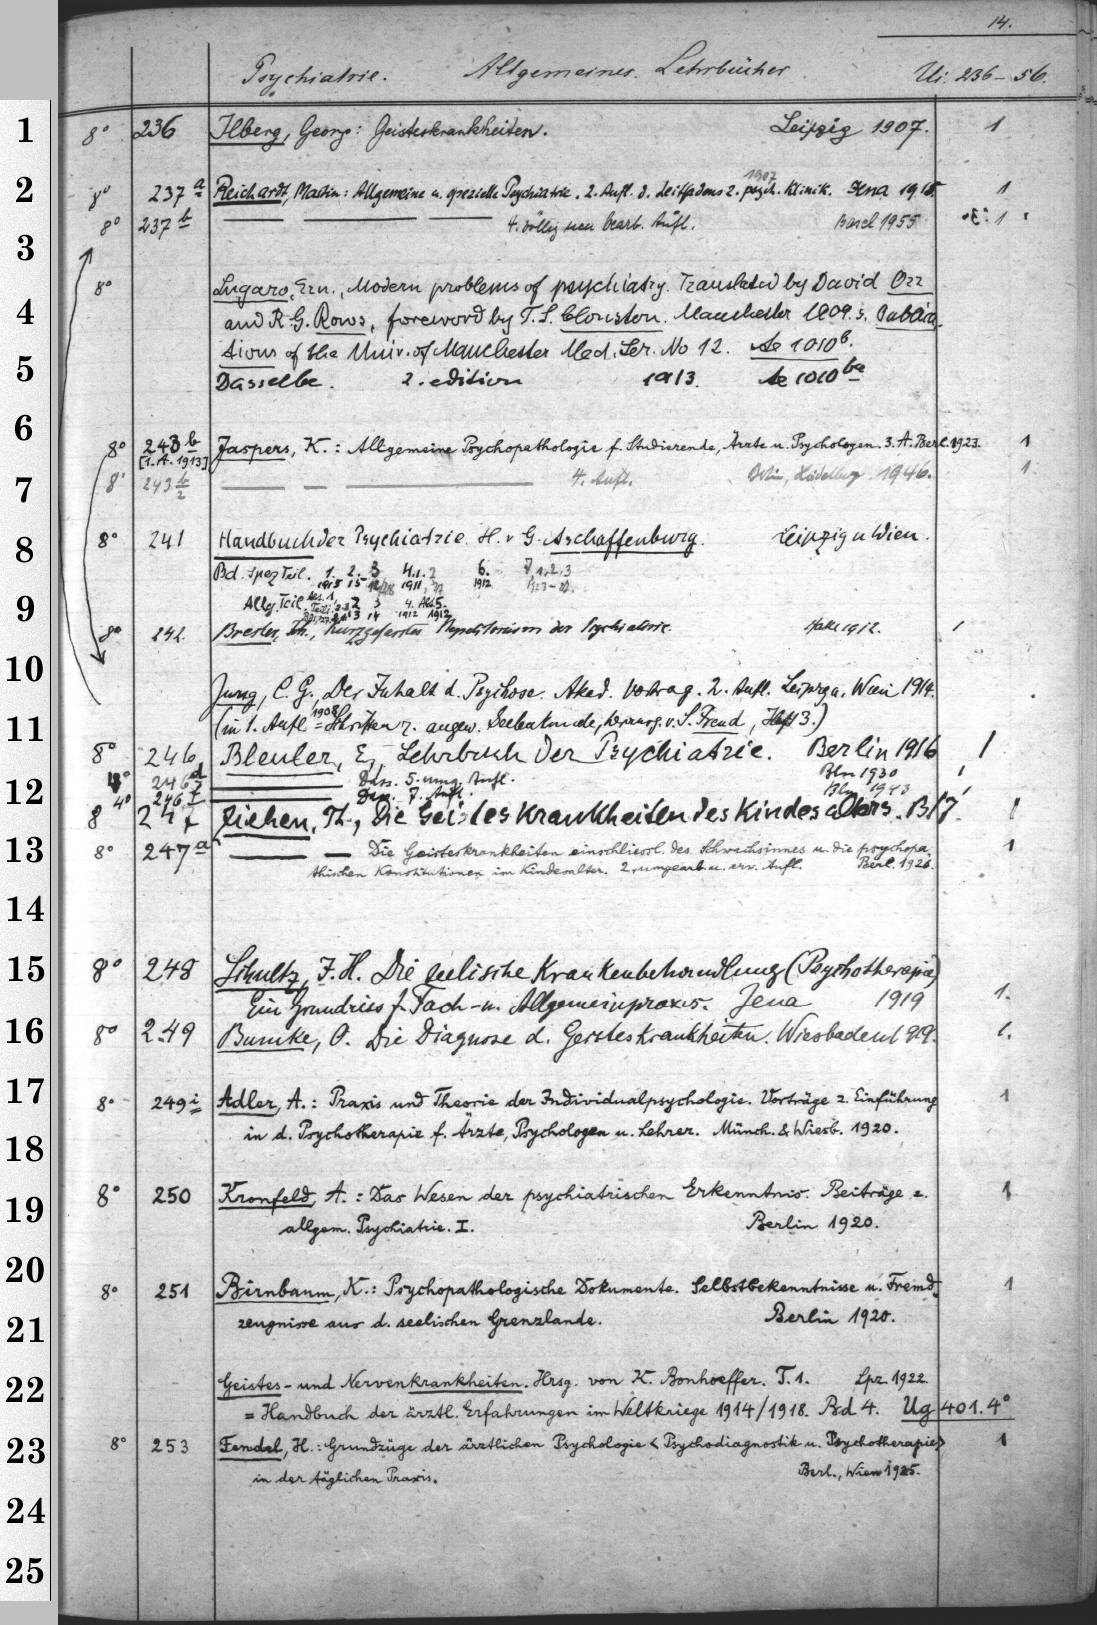 14.
Psychiatrie. Allgemeines. Lehrbücher Ui. 236-56.
1 8° 236 Ilberg, Georg: Geisteskrankheiten. Leipzig 1907. 1
1907
2 8° 237 a Reichardt, Martin: Allgemeine u. spezielle Psychiatrie. 2. Aufl. d. Leitfadens z. psych. Klinik. Jena 1918. 1
8° 237 b 4. völlig neu bearb. Aufl. Basel 1955 1
3
8° Lugaro, Ern., Modern problems of psychiatry. Translated by David Orr
4 and R. G. Rows, foreword by T. S. Clouston. Manchester 1909. s. Publica-
tions of the Univ. of Manchester Med. Ser. No 12. Ae 1010 b.
5 Dasselbe. 2. edition 1913. Ae 1010 ba
6
8° 243 b Jaspers, K.: Allgemeine Psychopathologie f. Studierende, Ärzte u. Psychologen. 3. A. Berl. 1923. 1
[1. A. 1913]
7 8° 243 4. Aufl. Heidelberg 1946. 1
8 8° 241 Handbuch der Psychiatrie. H. v. G. Aschaffenburg. Leipzig u Wien.
Bd. Spez Teil. 1. 2. 3 4.1. 2 6. 7 1.2.3
1915 15 1911, 1912
9 Allg. Teil 2 3 4. Abt. 5.
13 14 1912 1912
8° 242. Bresler, Joh., Kurzgefasstes Repetitorium der Psychiatrie. Halle 1912. 1
10
Jung, C. G., Der Inhalt d. Psychose. Akad. Vortrag. 2. Aufl. Leipzig u. Wien 1914.
11 (in 1. Aufl 1908 = Schriften z. angew. Seelenkunde, herausg. v. S. Freud, Heft 3.)
8° 246 Bleuler, E., Lehrbuch der Psychiatrie. Berlin 1916 1
8° 246 d Dass. 5. umg. Aufl. Bln 1930 1
12 4° 246 f Dass. 7. Aufl. Bln 1943 1
8 247 Ziehen, Th., Die Geisteskrankheiten des Kindesalters. B17. 1
13 8° 247 a Die Geisteskrankheiten einschliessl. des Schwachsinnes u. die psychopa-
thischen Konstitutionen im Kindesalter. 2. umgearb. u. erw. Aufl. Berl. 1926. 1
14
15 8° 248 Schultz, J. H. Die seelische Krankenbehandlung (Psychotherapie)
Ein Grundriss f. Fach- u. Allgemeinpraxis. Jena 1919 1.
16 8° 249 Bumke, O. Die Diagnose d. Geisteskrankheiten. Wiesbaden 1919. 1.
17 8° 249 i Adler, A.: Praxis und Theorie der Individualpsychologie. Vorträge z. Einführung 1
18 in d. Psychotherapie f. Ärzte, Psychologen u. Lehrer. Münch. & Wiesb. 1920.
19 8° 250 Kronfeld, A.: Das Wesen der psychiatrischen Erkenntnis. Beiträge z. 1
allgem. Psychiatrie. I. Berlin 1920.
20 8° 251 Birnbaum, K.: Psychopathologische Dokumente. Selbstbekenntnisse u. Fremd- 1
21 zeugnisse aus d. seelischen Grenzlande. Berlin 1920.
22 Geistes- und Nervenkrankheiten. Hrsg. von K. Bonhoeffer. T. 1. Lpz. 1922.
= Handbuch der ärztl. Erfahrungen im Weltkriege 1914/1918. Bd 4. Ug 401. 4°
23 8° 253 Fendel, H.: Grundzüge der ärztlichen Psychologie < Psychodiagnostik u. Psychotherapie> 1
in der täglichen Praxis. Berl., Wien 1925.
24
25